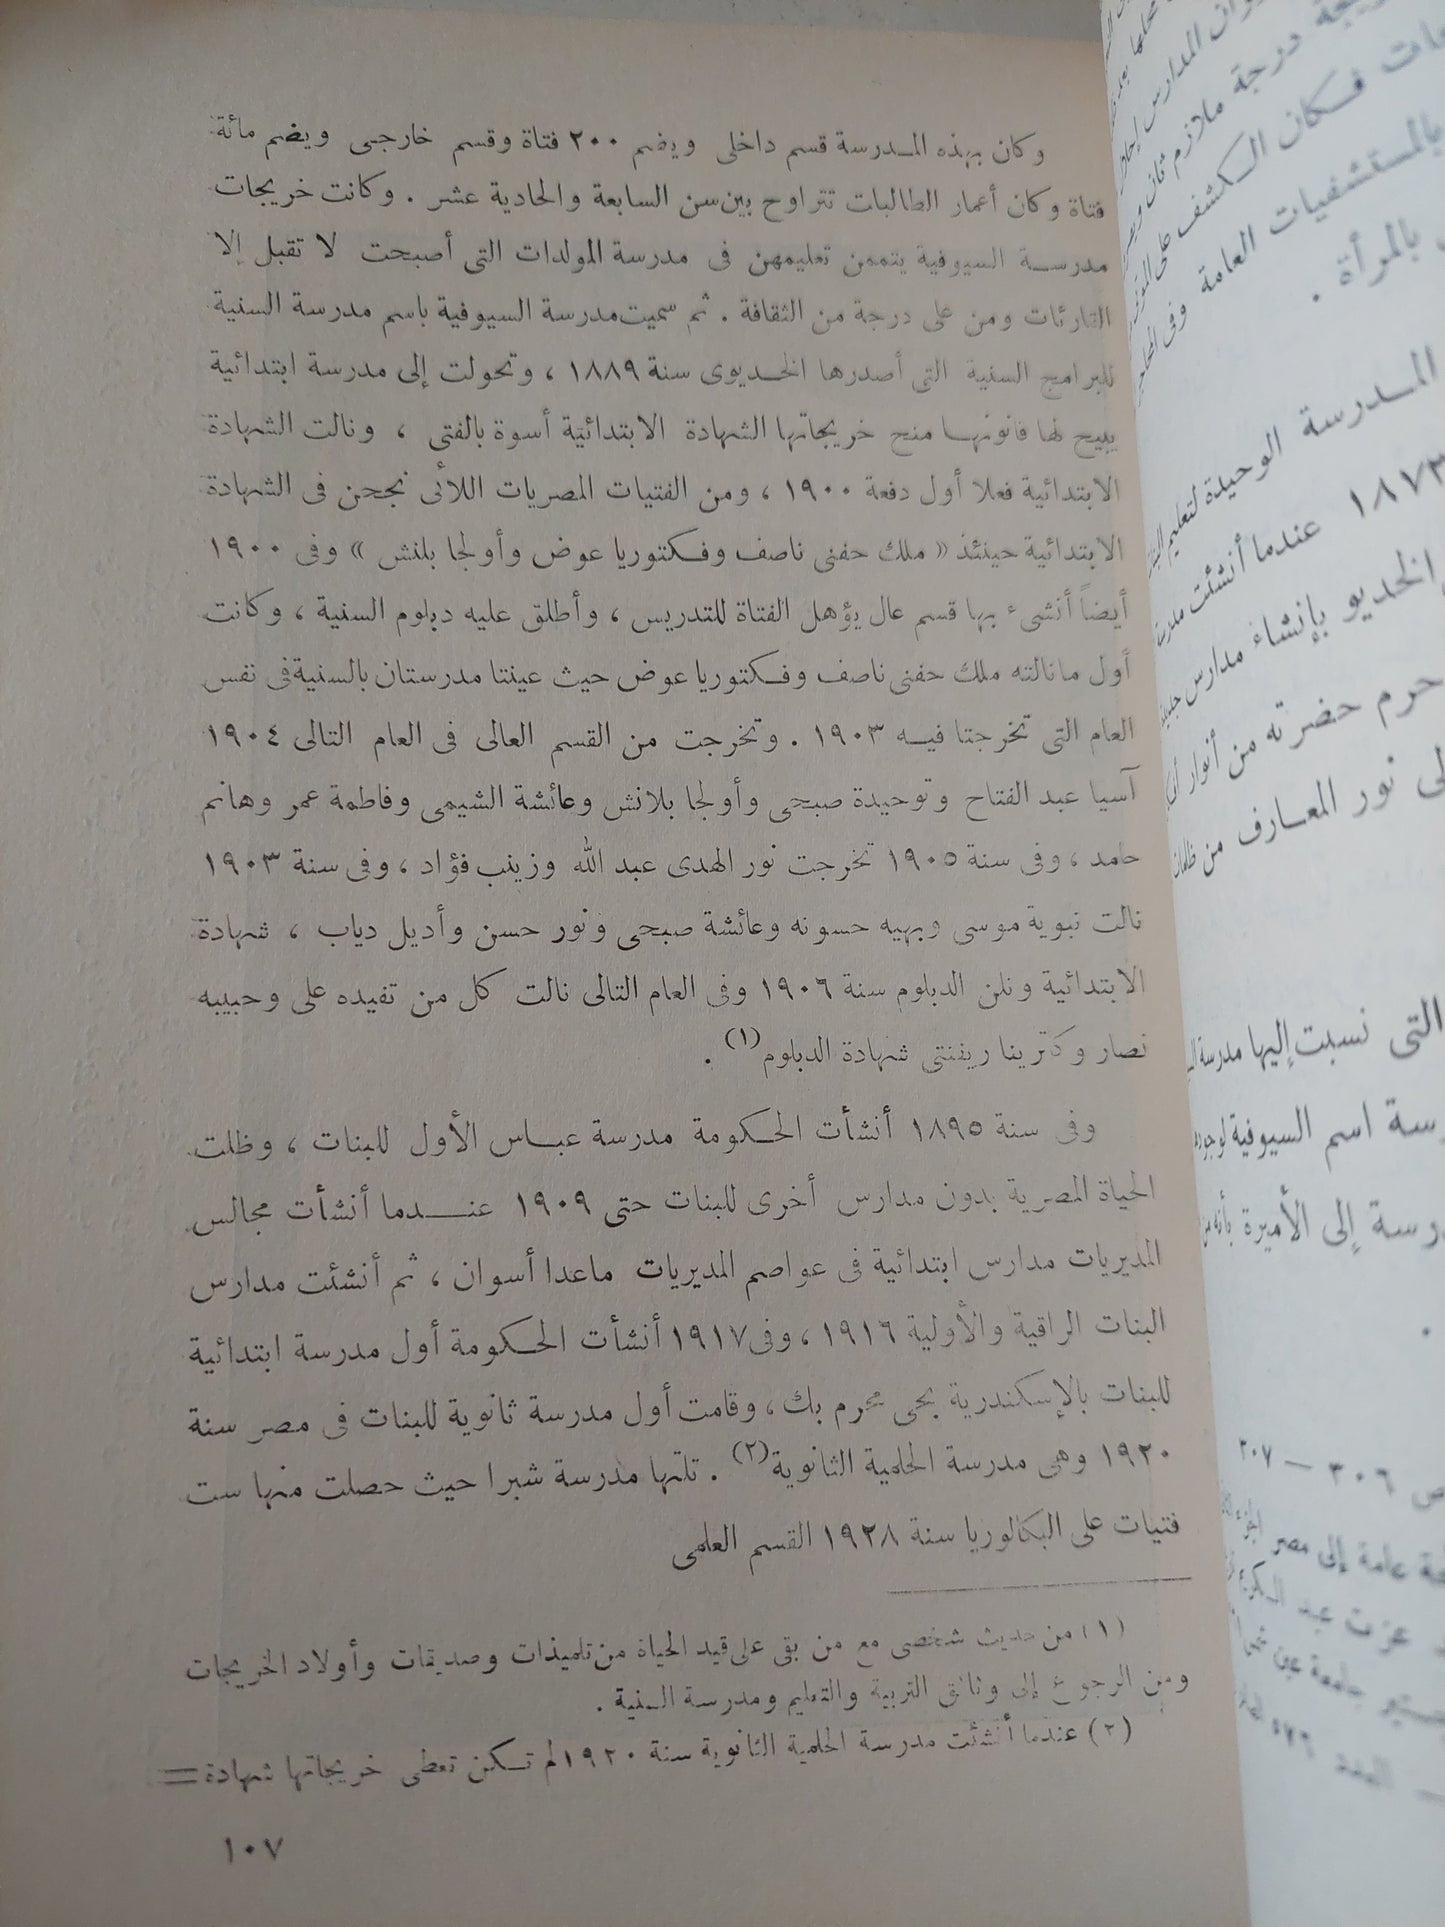 وكان بهذه المدرسة قسم داخلى ويضم ٢٠٠ فتاة وقسم خارجى ويضم مائة
فتاة وكان أعمار الطالبات تتراوح بين سن السابعة والحادية عشر . وكانت خريجات
مدرسة السيوفية يتممن تعليمهن فى مدرسة المولدات التى أصبحت لا تقبل إلا
القارئات ومن على درجة من الثقافة . ثم سميت مدرسة السيوفية باسم مدرسة السنية
للبرامج السنية التى أصدرها الخديوى سنة ١٨٨٩ ، وتحولت إلى مدرسة ابتدائية
يبيح لها قانونها منح خريجاتها الشهادة الابتدائية أسوة بالفتى ، ونالت الشهادة
الابتدائية فعلا أول دفعة ١٩٠٠ ، ومن الفتيات المصريات اللائى نجحن فى الشهادة
الابتدائية حينئذ « ملك حفنى ناصف وفكتوريا عوض وأولجا بلنش » وفى ١٩٠٠
أيضاً أنشىء بها قسم عال يؤهل الفتاة للتدريس ، وأطلق عليه دبلوم السنية ، وكانت
أول ما نالته ملك حفنى ناصف وفكتوريا عوض حيث عينتا مدرستان بالسنية فى نفس
العام التى تخرجتا فيه ١٩٠٣ . وتخرجت من القسم العالى فى العام التالى ١٩٠٤
آسيا عبد الفتاح وتوحيدة صبحى وأولجا بلانش وعائشة الشيمى وفاطمة عمر وهانم
حامد ، وفى سنة ١٩٠٥ تخرجت نور الهدى عبد الله وزينب فؤاد ، وفى سنة ١٩٠٣
نالت نبوية موسى وبهيه حسونه وعائشة صبحى ونور حسن وأديل دياب ، شهادة
الابتدائية ونلن الدبلوم سنة ١٩٠٦ وفى العام التالى نالت كل من تفيده على وحبيبه
نصار وكترينا ريفنتى شهادة الدبلوم(١) .
وفى سنة ١٨٩٥ أنشأت الحكومة مدرسة عباس الأول للبنات ، وظلت
الحياة المصرية بدون مدارس أخرى للبنات حتى ١٩٠٩ عندما أنشأت مجالس
المديريات مدارس ابتدائية فى عواصم المديريات ماعدا أسوان ، ثم أنشئت مدارس
البنات الراقية والأولية ١٩١٦ ، وفى ١٩١٧ أنشأت الحكومة أول مدرسة ابتدائية
للبنات بالإسكندرية بحى محرم بك ، وقامت أول مدرسة ثانوية للبنات فى مصر سنة
١٩٢٠ وهى مدرسة الحلمية الثانوية(٢) . تلتها مدرسة شبرا حيث حصلت منها ست
فتيات على البكالوريا سنة ١٩٢٨ القسم العلمى
(١) من حديث شخصى مع من بقى على قيد الحياة من تلميذات وصديقات وأولاد الخريجات
ومن الرجوع إلى وثائق التربية والتعليم ومدرسة السنية .
(٢) عندما أنشئت مدرسة الحلمية الثانوية سنة ١٩٢٠ لم تكن تعطى خريجاتها شهادة =
١٠٧
درجة ملازم ثان
فكان الكشف على
بالمستشفيات العامة وفى
بالمرأة .
المدرسة الوحيدة لتعليم
١٨٧٣ عندما أنشئت مدرسة
الخديو بإنشاء مدارس
حرم حضرته من أنوار
نور المعارف من
التى نسبت إليها مدرسة
اسم السيوفية
إلى الأميرة بأنه
٣٠٦ — ٣٠٧